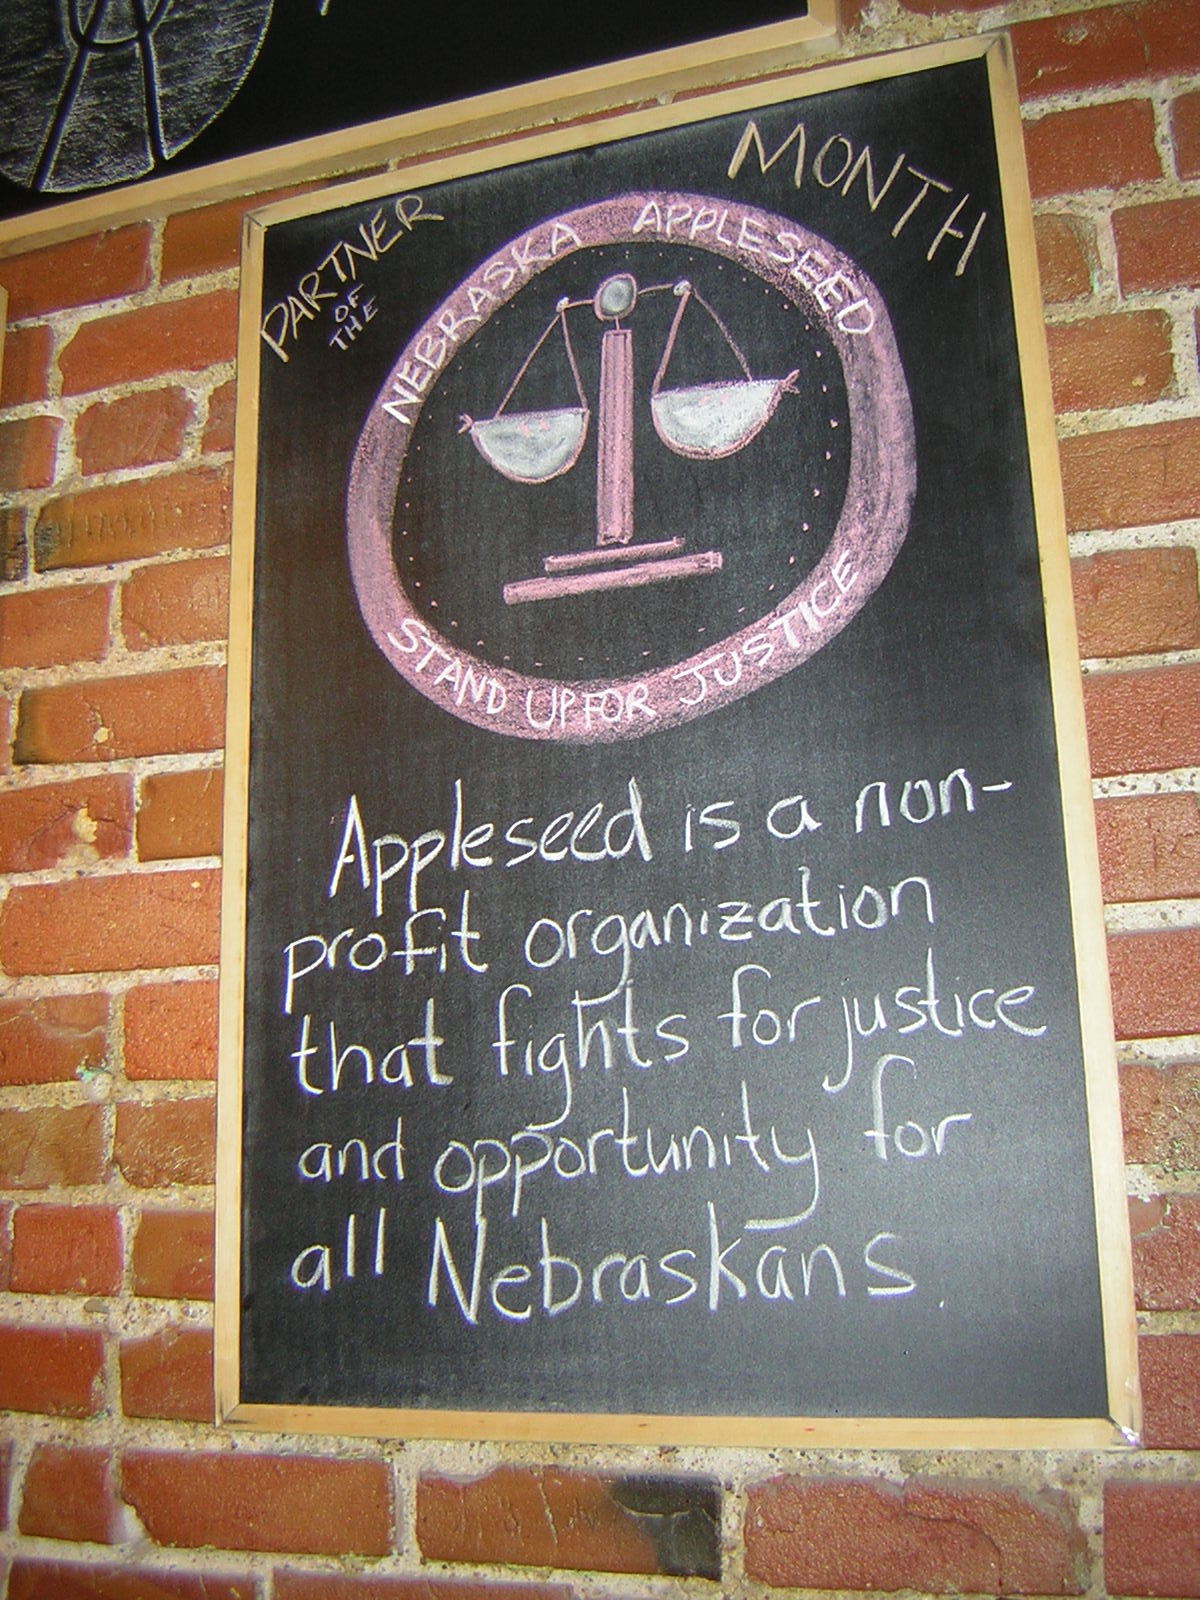 PARTNER
OF
THE
MONTH
NEBRASKA APPLESEED
STAND UP FOR JUSTICE
Appleseed is a non-
profit organization
that fights for justice
and opportunity for
all Nebraskans.